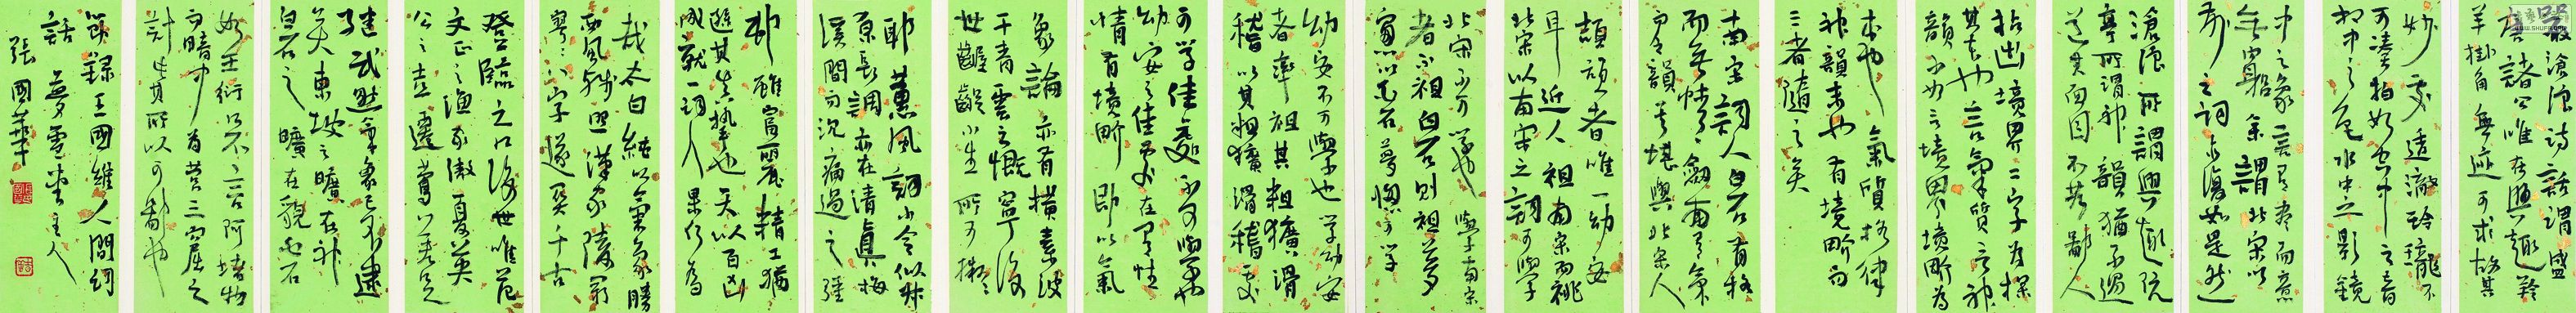 嚴滄浪詩話謂盛
唐諸公唯在興趣羚
羊掛角無迹可求故其
妙處透澈玲瓏不
可湊拍如空中之音
相中之色水中之影鏡
中之象言有盡而意
無窮余謂北宋以
前之詞亦復如是然
滄浪所謂興趣阮
亭所謂神韻猶不過
道其面目不若鄙人
拈出境界二字為探
其本也言氣質言神
韻不如言境界境界為
本也氣質格律
神韻末也有境界而
三者隨之矣
南宋詞人白石有格
而無情劍南有氣
而乏韻其堪與北宋人
頡頏者唯一幼安
耳近人祖南宋而祧
北宋以南宋之詞可學
北宋不可學也學南宋
者不祖白石則祖夢
窗以白石夢窗可學
幼安不可學也學幼安
者率祖其粗獷滑
稽以其粗獷滑稽處
可學佳處不可學也
幼安之佳處在有性
情有境界即以氣
象論亦有橫素波
干青雲之慨寧後
世齷齪小生所可擬
耶蕙風詞小令似叔
原長調亦在清真梅
溪間而沉痛過之彊
邨雖富麗精工猶
遜其真摯也天以百凶
成就一詞人果何為
哉太白純以氣象勝
西風殘照漢家陵闕
寥寥八字遂關千古
登臨之口後世唯范
文正之漁家傲夏英
公之喜遷鶯差足
繼武然氣象已不逮
矣東坡之曠在神
白石之曠在貌白石
如王衍口不言阿堵物
而暗中為營三窟之
計此其所以可鄙也
節錄王國維人間詞
話 夢雲堂主人
張國華